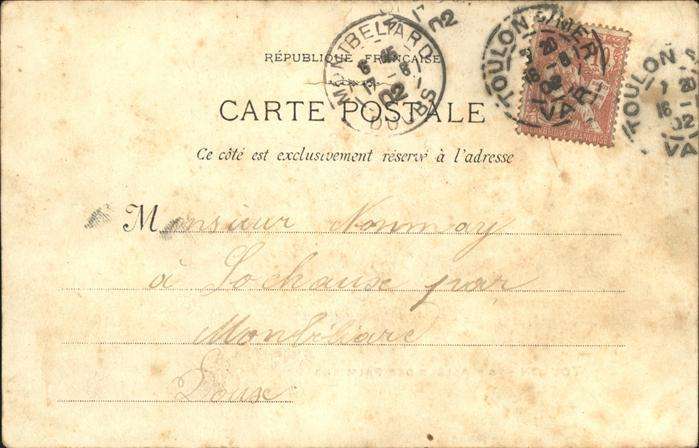 RÉPUBLIQUE FRANÇAISE
CARTE POSTALE
Ce côté est exclusivement réservé à l'adresse
MONTBELIARD
DOUBS
TOULON S MER
VAR
TOULON S
VA
Monsieur Nonmay
à Lochaux par
Montbéliard
Doux